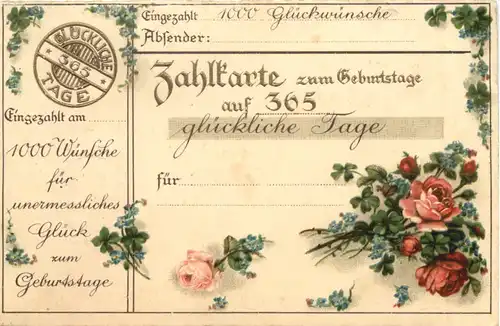 GLÜCKLICHE
365
TAGE
Eingezahlt am
1000 Wünsche
für
unermessliches
Glück
zum
Geburtstage
Eingezahlt 1000 Glückwünsche
Absender:
Zahlkarte zum Geburtstage
auf 365
glückliche Tage
für